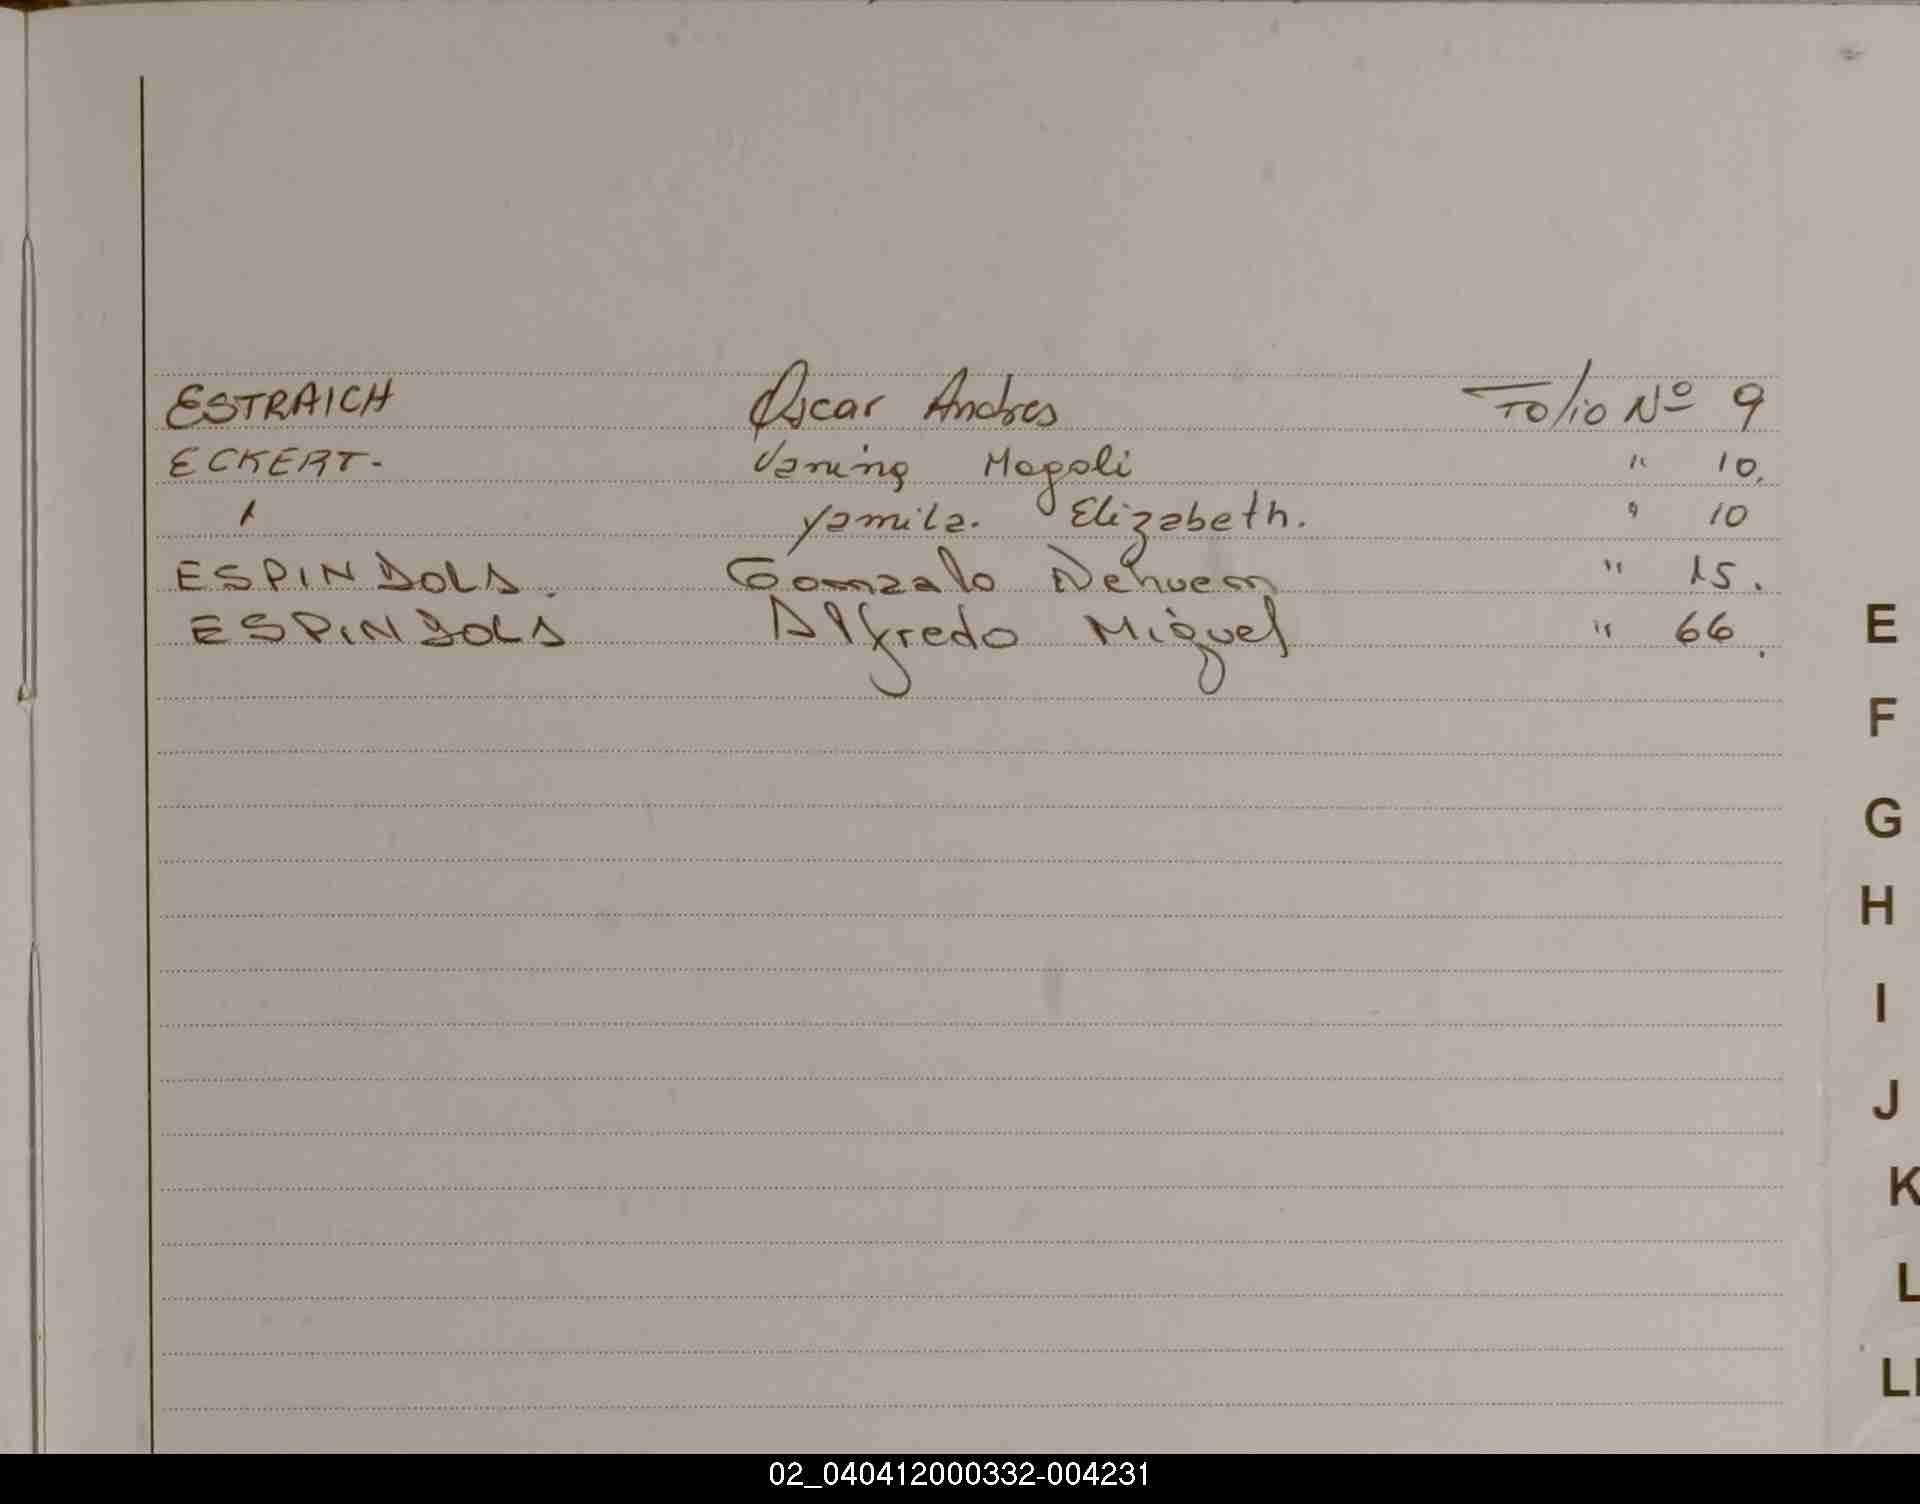 ESTRAICH Oscar Andres Folio Nº 9
ECKERT- Vanina Magali " 10.
" Yamila. Elizabeth. " 10
ESPINDOLA. Gonzalo Nehuen " 15.
ESPINDOLA Alfredo Miguel " 66.
E
F
G
H
I
J
K
L
LL
02_040412000332-004231